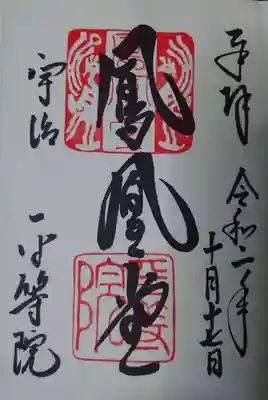 奉拝
令和二年
十月十七日
鳳凰堂
宇治
平等院